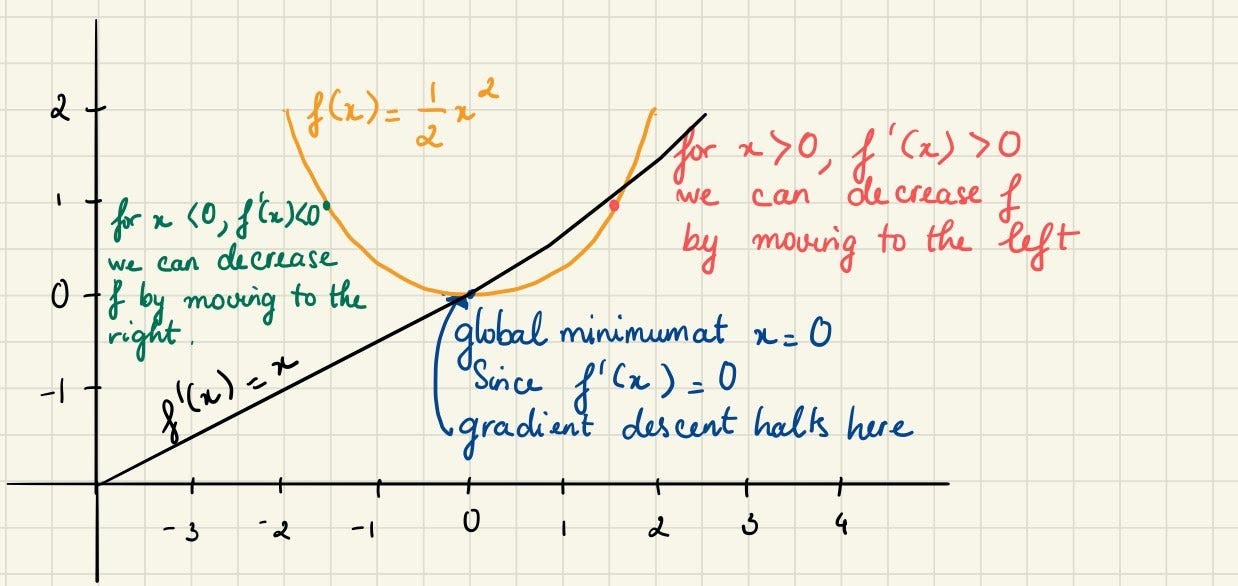 f(x) = 1/2 x²
for x > 0, f'(x) > 0
we can decrease f
by moving to the left
for x < 0, f'(x) < 0
we can decrease
f by moving to the
right.
global minimum at x = 0
Since f'(x) = 0
gradient descent halts here
f'(x) = x
2
1
0
-1
-3 -2 -1 0 1 2 3 4